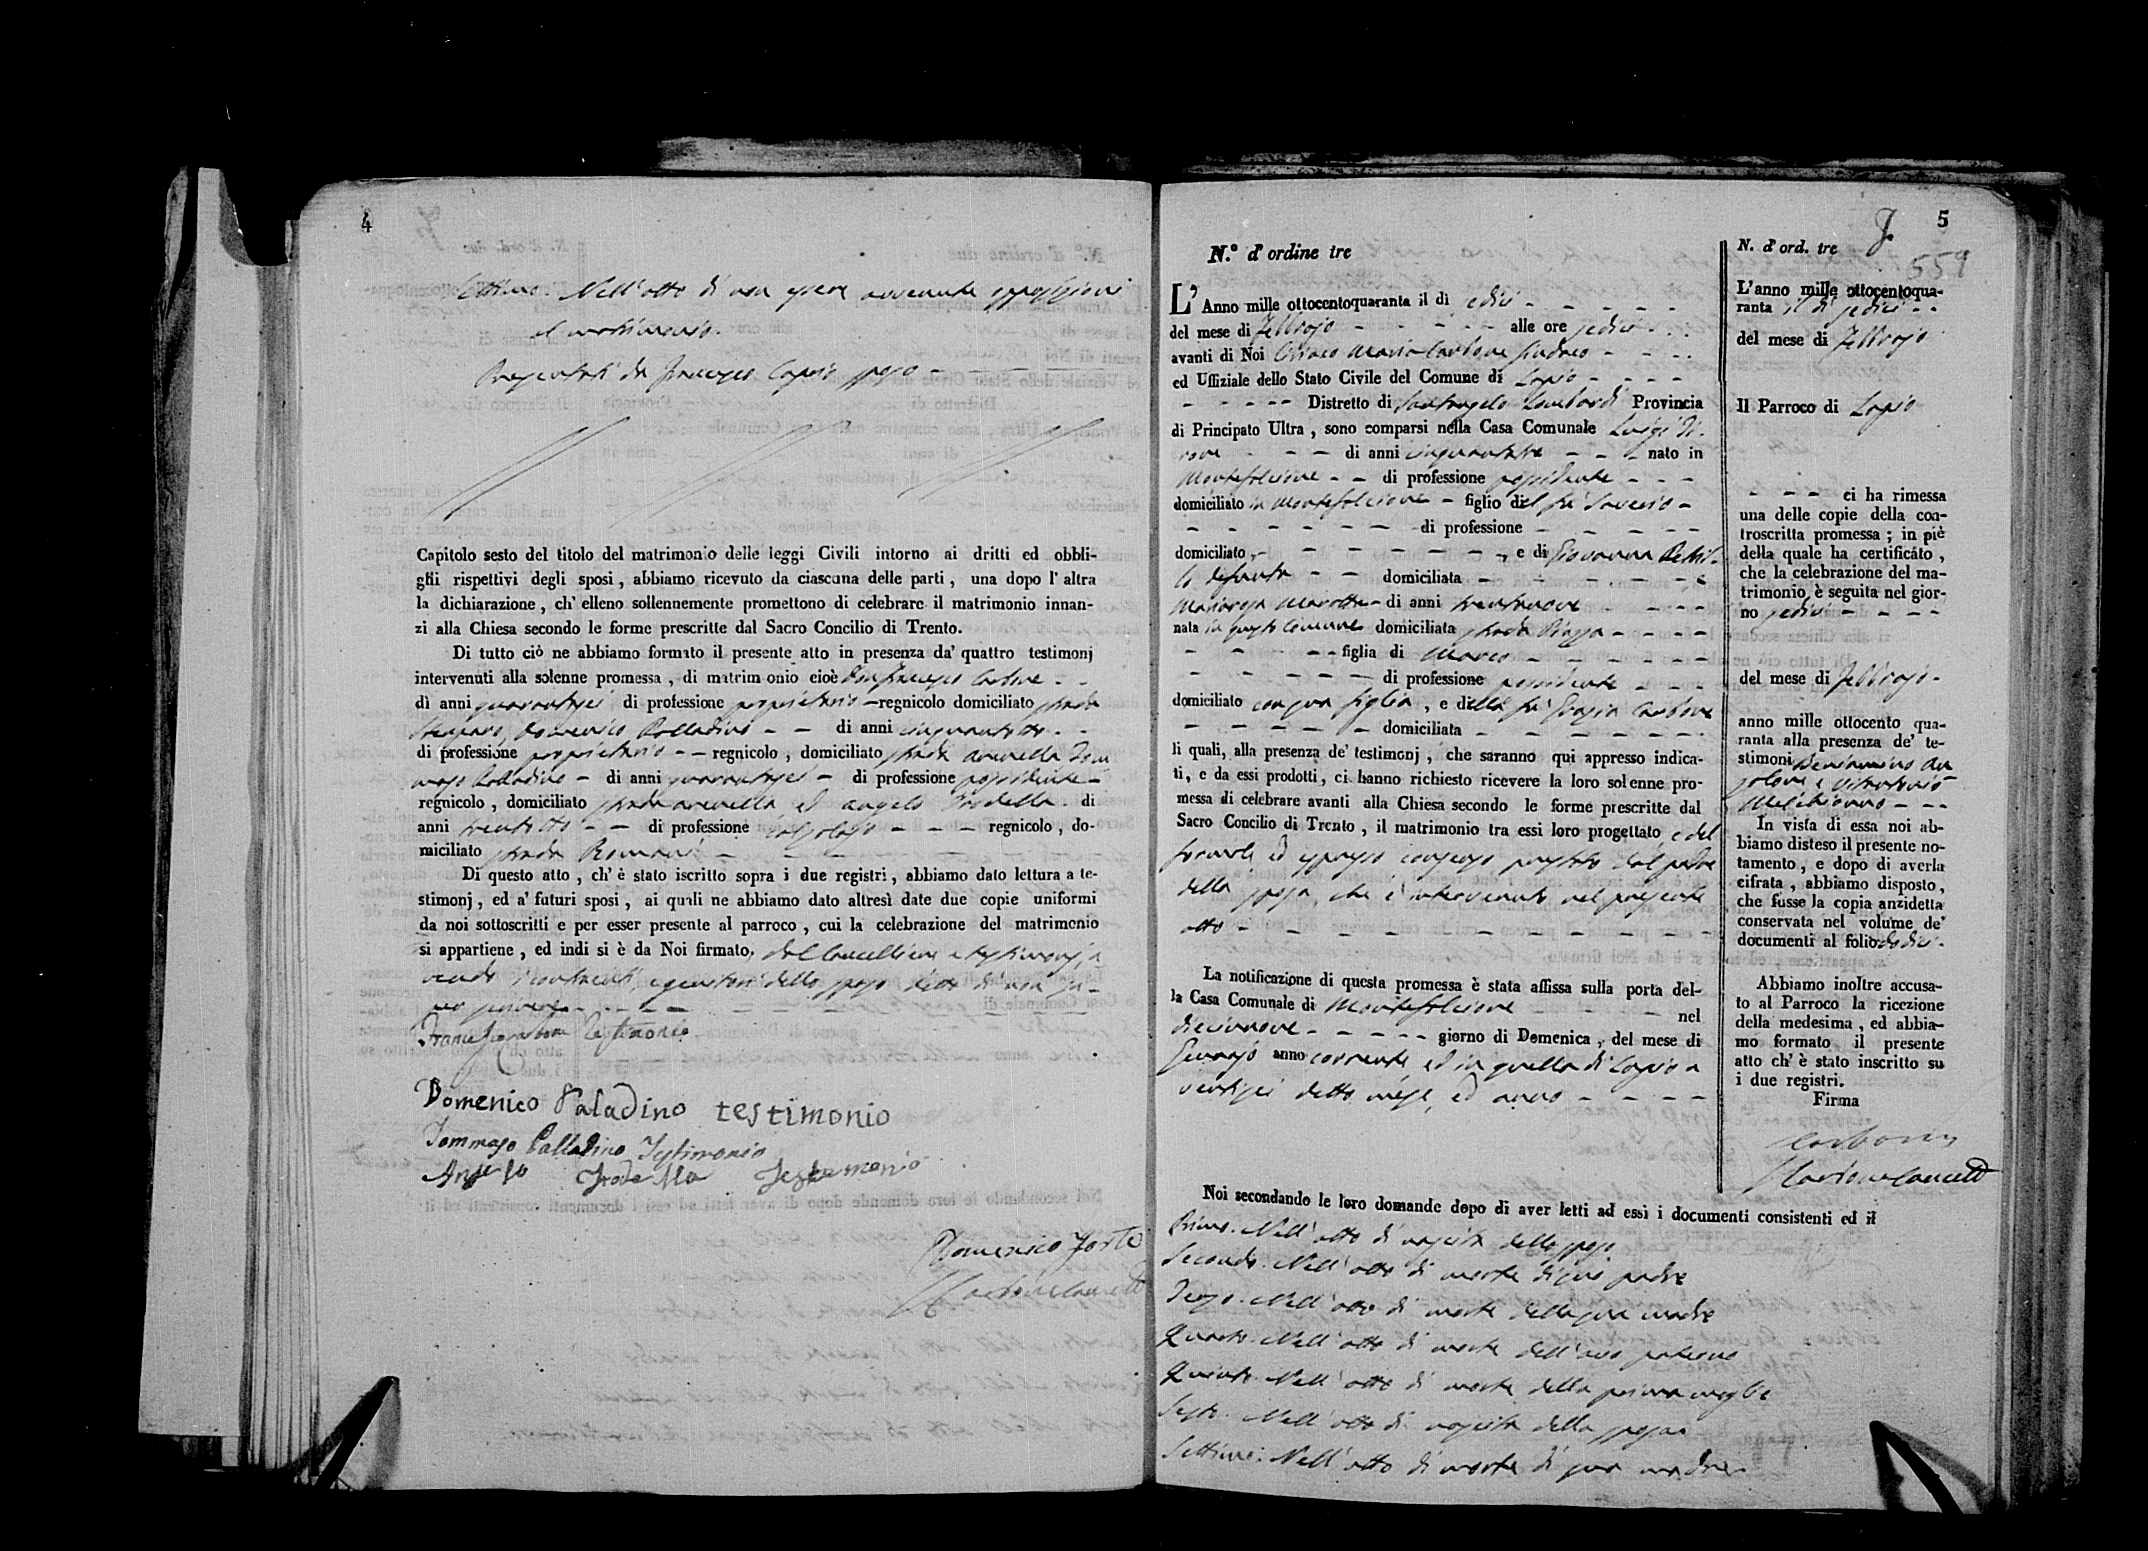 4
Ottavo. Nell'atto di non essere avvenuta opposizione
al matrimonio.
Presentati da Francesco Caprio sposo
Capitolo sesto del titolo del matrimonio delle leggi Civili intorno ai dritti ed obbli-
ghi rispettivi degli sposi, abbiamo ricevuto da ciascuna delle parti, una dopo l'altra
la dichiarazione, ch'elleno sollennemente promettono di celebrare il matrimonio innan-
zi alla Chiesa secondo le forme prescritte dal Sacro Concilio di Trento.
Di tutto ciò ne abbiamo formato il presente atto in presenza da' quattro testimonj
intervenuti alla solenne promessa, di matrimonio cioè Don Francesco Carbone
di anni quarantasei di professione proprietario regnicolo domiciliato strada
Domenico Palladino di anni cinquantotto
di professione proprietario regnicolo, domiciliato strada Arenella Tom
maso Palladino di anni quarantasei di professione possidente
regnicolo, domiciliato strada Arenella ed Angelo Trodella di
anni trentotto di professione regnicolo, do-
miciliato strada Romani
Di questo atto, ch'è stato iscritto sopra i due registri, abbiamo dato lettura a te-
stimonj, ed a' futuri sposi, ai quali ne abbiamo dato altresì date due copie uniformi
da noi sottoscritti e per esser presente al parroco, cui la celebrazione del matrimonio
si appartiene, ed indi si è da Noi firmato, dal Cancelliere e testimonj, a
vendo i contraenti, e genitori dello sposo detto di non sa-
per scrivere
Francesco Carbone Testimonio
Domenico Paladino testimonio
Tommaso Palladino Testimonio
Angelo Trodella Testimonio
Domenico Forte
Carbone Cancell
5
559
N.° d'ordine tre
L'Anno mille ottocentoquaranta il di sedici
del mese di Febbrajo alle ore sedici
avanti di Noi Ciriaco Maria Carbone Sindaco
ed Uffiziale dello Stato Civile del Comune di Lapio
Distretto di Santangelo Lombardi Provincia
di Principato Ultra, sono comparsi nella Casa Comunale Luigi
di anni cinquantatre nato in
Montefalcione di professione possidente
domiciliato in Montefalcione figlio del fu Saverio
di professione
domiciliato, e di Giovanna Petril-
lo defunta domiciliata e
Mariarosa Marotta di anni trentanove
nata in questo Comune domiciliata strada Piazza
figlia di Marco
di professione possidente
domiciliato con sua figlia, e della fu Grazia Carbone
domiciliata
li quali, alla presenza de' testimonj, che saranno qui appresso indica-
ti, e da essi prodotti, ci hanno richiesto ricevere la loro solenne pro-
messa di celebrare avanti alla Chiesa secondo le forme prescritte dal
Sacro Concilio di Trento, il matrimonio tra essi loro progettato e del
formale ed espresso consenso prestato dal padre
della sposa, che è intervenuto nel presente
atto
La notificazione di questa promessa è stata affissa sulla porta del-
la Casa Comunale di Montefalcione nel
diecinnove giorno di Domenica, del mese di
Gennajo anno corrente, ed in quella di Lapio a
ventisei detto mese, ed anno
Noi secondando le loro domande dopo di aver letti ad essi i documenti consistenti ed il
Primo. Nell'atto di nascita dello sposo
Secondo. Nell'atto di morte di suo padre
Terzo. Nell'atto di morte della sua madre
Quarto. Nell'atto di morte dell'avo paterno
Quinto. Nell'atto di morte della prima moglie
Sesto. Nell'atto di nascita della sposa
Settimo. Nell'atto di morte di sua madre
N. d'ord. tre
L'anno mille ottocentoqua-
ranta il di sedici
del mese di Febbrajo
Il Parroco di Lapio
ci ha rimessa
una delle copie della con-
troscritta promessa; in piè
della quale ha certificàto,
che la celebrazione del ma-
trimonio è seguita nel gior-
no sedici
del mese di Febbrajo
anno mille ottocento qua-
ranta alla presenza de' te-
stimoni Beniamino An
zolone e Vitantonio
Melchionno
In vista di essa noi ab-
biamo disteso il presente no-
tamento, e dopo di averla
cifrata, abbiamo disposto,
che fusse la copia anzidetta
conservata nel volume de'
documenti al folio dodici
Abbiamo inoltre accusa-
to al Parroco la ricezione
della medesima, ed abbia-
mo formato il presente
atto ch'è stato inscritto su
i due registri.
Firma
Carbone
Carbone Cancell